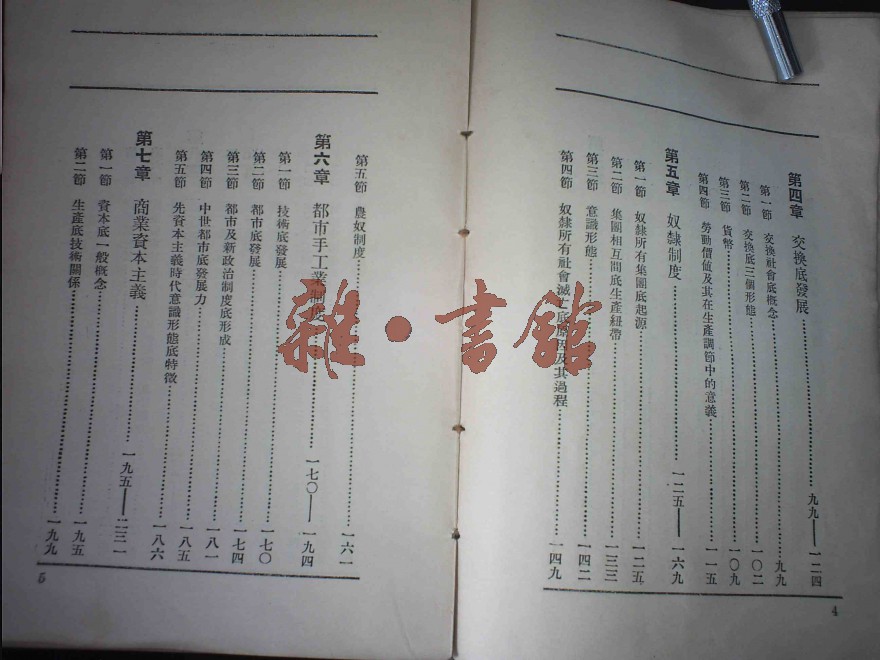 第四章 交換底發展……九九——一二四
第一節 交換社會底概念……九九
第二節 交換底三個形態……一〇二
第三節 貨幣……一〇九
第四節 勞動價値及其在生產調節中的意義……一一五
第五章 奴隸制度……一二五——一六九
第一節 奴隸所有集團底起源……一二五
第二節 集團相互間底生產紐帶……一三三
第三節 意識形態……一四二
第四節 奴隸所有社會滅亡底原因及其過程……一四九
4
第五節 農奴制度……一六一
第六章 都市手工業制度……一七〇——一九四
第一節 技術底發展……一七〇
第二節 都市底發展……一七四
第三節 都市及新政治制度底形成……一八一
第四節 中世都市底發展力……一八五
第五節 先資本主義時代意識形態底特徵……一八六
第七章 商業資本主義……一九五——二三一
第一節 資本底一般概念……一九五
第二節 生產底技術關係……一九九
5
雜·書館